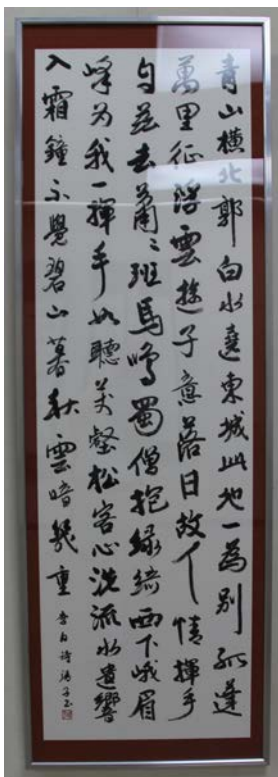 青山橫北郭白水遶東城此地一為別孤蓬
萬里征浮雲遊子意落日故人情揮手
自茲去蕭々班馬鳴蜀僧抱綠綺西下峨眉
峰为我一揮手如聽萬壑松客心洗流水遺響
入霜鐘不覺碧山暮秋雲暗幾重 李白詩